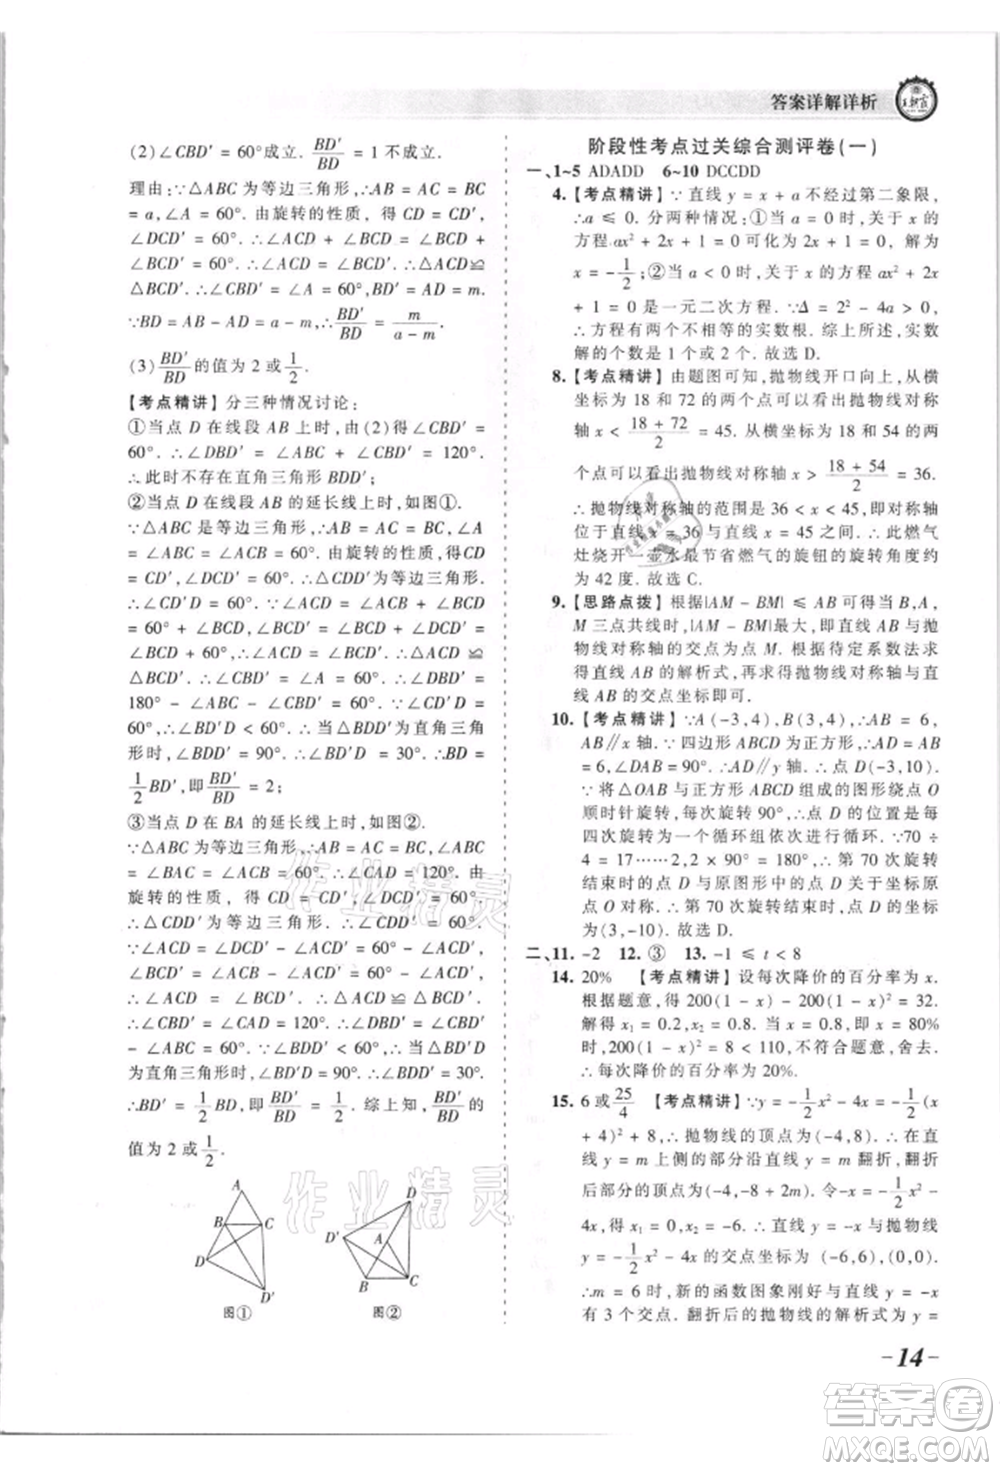 答案详解详析
王朝霞
(2)∠CBD′ = 60°成立. BD′/BD = BD′/BD不成立.
理由:∵△ABC为等边三角形,∴∠ACB = 60°,BC
= a,∠A = 60°. 由旋转的性质, 得 CD = CD′,
∠DCD′ = 60°. ∴∠ACD + ∠BCD = ∠BCD +
∠BCD′. ∴∠ACD = ∠BCD′. ∴△ACD≌
△BCD′. ∴∠CBD′ = ∠A = 60°,BD′ = AD = m.
∵BD = AB - AD = a - m,∴BD′/BD = m/(a - m).
(3)BD′/BD的值为 2 或1/2.
【考点精讲】分三种情况讨论:
①当点 D 在线段 AB 上时,由(2)得∠CBD′ =
60°. ∴∠DBD′ = ∠ABC + ∠CBD′ = 120°.
∴此时不存在直角三角形 BDD′.
②当点 D 在线段 AB 的延长线上时,如图①.
∵△ABC 是等边三角形,∴AC = BC,∠A =
∠ACB = ∠ABC = 60°. 由旋转的性质, 得 CD =
CD′,∠DCD′ = 60°. ∴△CDD′为等边三角形.
∴∠CD′D = 60°. ∵∠ACD = ∠ACB + ∠BCD =
60° + ∠BCD,∠BCD′ = ∠DCD′ + ∠BCD =
60° + ∠BCD,∴∠ACD = ∠BCD′. ∴△ACD≌
△BCD′. ∴∠CBD′ = ∠A = 60°. ∴∠DBD′ =
180° - ∠ABC - ∠CBD′ = 60°. ∵∠BD′D <
∠CD′D,∴∠BD′D < 60°. ∴当△BDD′为直角三角
形时,∠BDD′ = 90°. ∴∠BD′D = 30°. ∴BD =
1/2BD′,即BD′/BD = 2;
③当点 D 在 BA 的延长线上时,如图②.
∵△ABC为等边三角形,∴AC = BC,∠ACB =
∠ABC = ∠BAC = 60°. ∴∠CAD = 120°. 由
旋转的性质, 得 CD = CD′, ∠DCD′ = 60°.
∴△CDD′为等边三角形. ∴∠CDD′ = 60°.
∵∠ACD = ∠BCD - ∠ACB = ∠BCD - 60°,
∠BCD′ = ∠BCD - ∠DCD′ = ∠BCD - 60°,
∴∠ACD = ∠BCD′. ∴△ACD≌△BCD′.
∴∠CBD′ = ∠CAD = 120°. ∴∠DBD′ = ∠CBD′
- ∠ABC = 60°. ∵∠BDD′ < 60°,∴当△BDD′
为直角三角形时,∠BD′D = 90°. ∴∠BDD′ = 30°.
∴BD′ = 1/2BD,即BD′/BD = 1/2. 综上知,BD′/BD的
值为 2 或1/2.
A B C D D′ 图①
D D′ A B C 图②
阶段性考点过关综合测评卷(一)
一、1~5 ADADD 6~10 DCCDD
4.【考点精讲】∵直线 y = x + a 不经过第二象限,
∴a ≤ 0. 分两种情况:①当 a = 0时,关于 x 的
方程 ax² + 2x + 1 = 0 可化为 2x + 1 = 0,解为
x = -1/2;②当 a < 0 时,关于 x 的方程 ax² + 2x
+ 1 = 0 是一元二次方程. ∵Δ = 2² - 4a > 0,
∴方程有两个不相等的实数根. 综上所述,实数
解的个数是 1 个或 2 个. 故选 D.
8.【考点精讲】由题图可知,抛物线开口向上,从横
坐标为 18 和 72 的两个点可以看出抛物线对称
轴 x < (18 + 72)/2 = 45. 从横坐标为 18 和 54 的两
个点可以看出抛物线对称轴 x > (18 + 54)/2 = 36.
∴抛物线对称轴的范围是 36 < x < 45,即对称轴
位于直线 x = 36 与直线 x = 45 之间,∴此燃气
灶烧开一壶水最节省燃气的旋钮的旋转角度约
为 42 度. 故选 C.
9.【思路点拨】根据|AM - BM| ≤ AB 可得当 B,A,
M 三点共线时,|AM - BM|最大,即点 M 为直线 AB 与抛
物线对称轴的交点. 根据待定系数法求
得直线 AB 的解析式,再求得抛物线对称轴与直
线 AB 的交点坐标即可.
10.【考点精讲】∵A(-3,4),B(3,4),∴AB = 6,
AB∥x 轴. ∵四边形 ABCD 为正方形,∴AD = AB
= 6,∠DAB = 90°. ∴AD∥y 轴. ∴D(-3,10).
∵将△OAB 与正方形 ABCD 组成的图形绕点 O
顺时针旋转,每次旋转 90°,∴点 D 的位置是每
四次旋转为一个循环组依次进行循环. ∵70 ÷
4 = 17……2,∴第 70 次旋转
结束时的点 D 与原图形中的点 D 关于坐标原
点 O 对称. ∴第 70 次旋转结束时,点 D 的坐标
为(3,-10). 故选 D.
二、11. -2 12. ③ 13. -1 ≤ t < 8
14. 20% 【考点精讲】设每次降价的百分率为 x.
根据题意,得 200(1 - x) - 200(1 - x)² = 32.
解得 x₁ = 0.2,x₂ = 0.8. 当 x = 0.8,即 80%
时,200(1 - x)² = 8 < 110,不符合题意,舍去.
∴每次降价的百分率为 20%.
15. 6 或25/4 【考点精讲】∵y = -1/2x² - 4x = -1/2(x
+ 4)² + 8,∴抛物线的顶点为(-4,8). ∴在直
线 y = m 上侧的部分沿直线 y = m 翻折,翻折
后部分的顶点为(-4,-8 + 2m). 令-x = -1/2x² -
4x,得 x₁ = 0,x₂ = -6. ∴直线 y = -x 与抛物线
y = -1/2x² - 4x 的交点坐标为(-6,6),(0,0).
∴m = 6 时,新的函数图象刚好与直线 y = -x
有 3 个交点. 翻折后的抛物线的解析式为 y =
-14-
作业精灵
作业精灵
答案圈
MXQE.COM